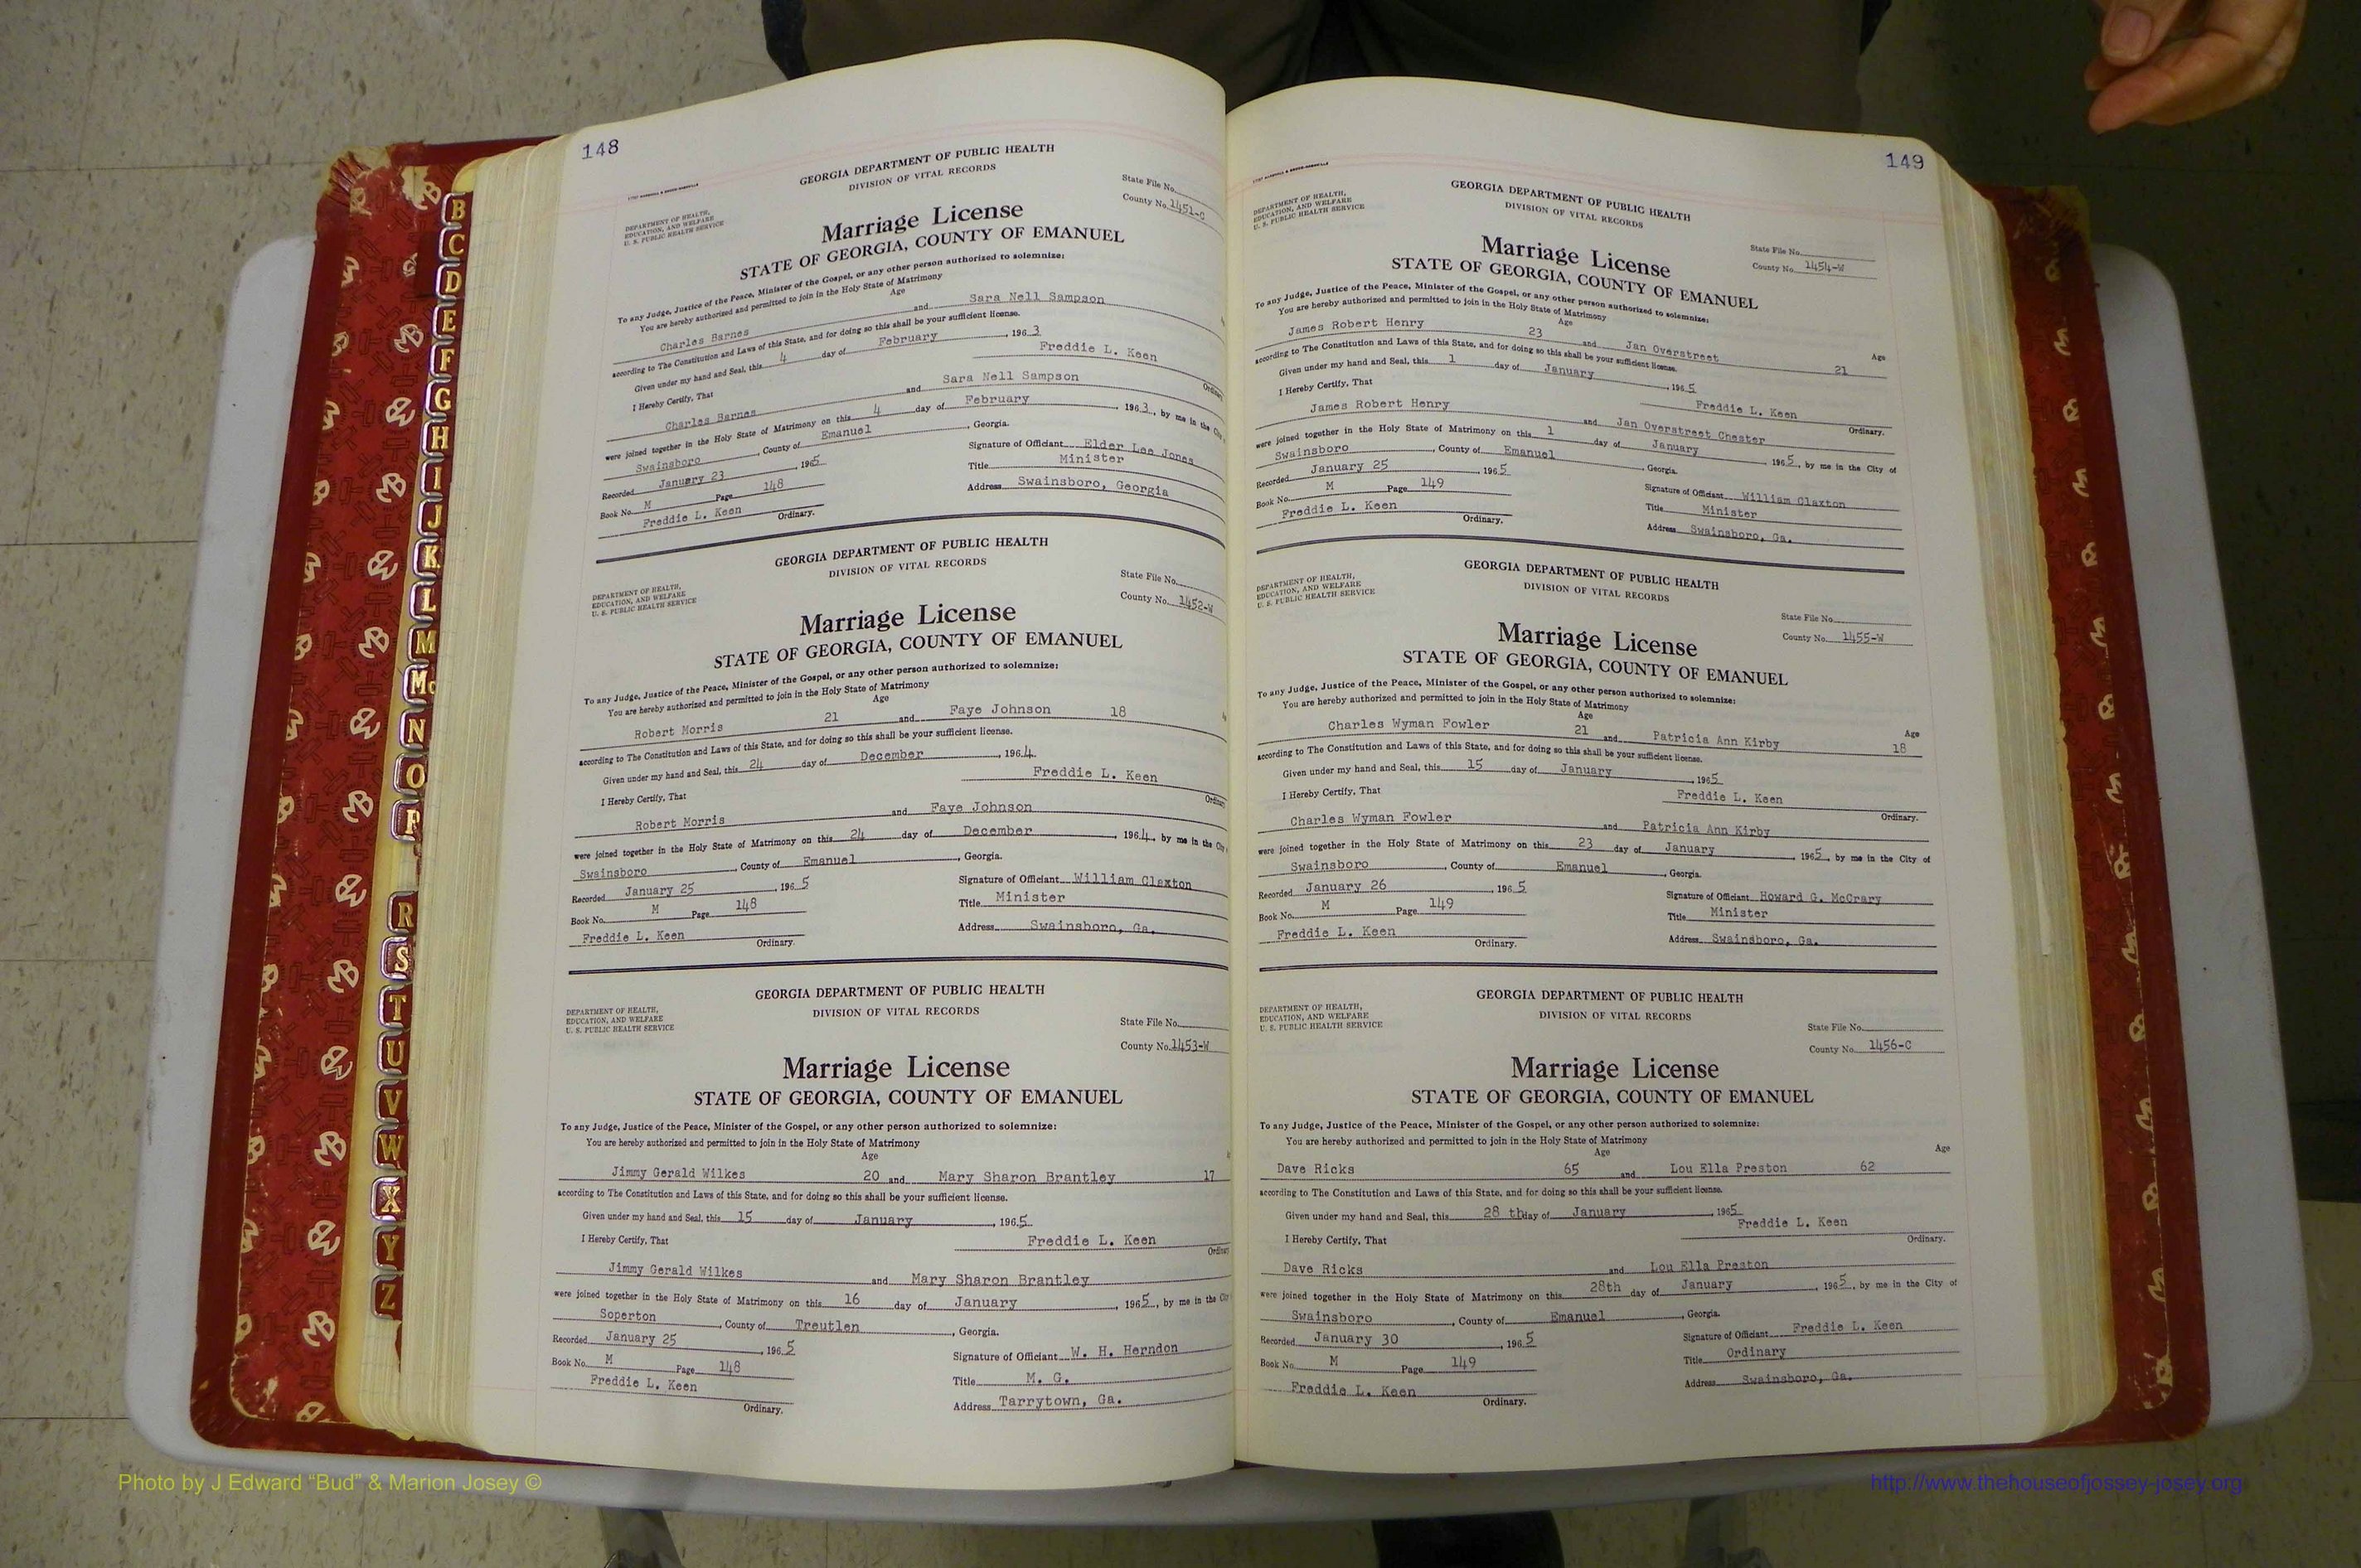 148
GEORGIA DEPARTMENT OF PUBLIC HEALTH
DIVISION OF VITAL RECORDS
DEPARTMENT OF HEALTH,
EDUCATION, AND WELFARE
U. S. PUBLIC HEALTH SERVICE
State File No.
County No. 1451-C
Marriage License
STATE OF GEORGIA, COUNTY OF EMANUEL
To any Judge, Justice of the Peace, Minister of the Gospel, or any other person authorized to solemnize:
You are hereby authorized and permitted to join in the Holy State of Matrimony
Age
Charles Barnes and Sara Nell Sampson
according to The Constitution and Laws of this State, and for doing so this shall be your sufficient license.
Given under my hand and Seal, this 4 day of February, 1963
Freddie L. Keen
I Hereby Certify, That Ordinary
Charles Barnes and Sara Nell Sampson
were joined together in the Holy State of Matrimony on this 4 day of February 1963, by me in the City
Swainsboro, County of Emanuel, Georgia.
Recorded January 23, 1965 Signature of Officiant Elder Lee Jones
Book No. M Page 148 Title Minister
Freddie L. Keen Ordinary. Address Swainsboro, Georgia
GEORGIA DEPARTMENT OF PUBLIC HEALTH
DIVISION OF VITAL RECORDS
DEPARTMENT OF HEALTH,
EDUCATION, AND WELFARE
U. S. PUBLIC HEALTH SERVICE
State File No.
County No. 1452-W
Marriage License
STATE OF GEORGIA, COUNTY OF EMANUEL
To any Judge, Justice of the Peace, Minister of the Gospel, or any other person authorized to solemnize:
You are hereby authorized and permitted to join in the Holy State of Matrimony
Age
Robert Morris 21 and Faye Johnson 18
according to The Constitution and Laws of this State, and for doing so this shall be your sufficient license.
Given under my hand and Seal, this 24 day of December, 1964
Freddie L. Keen
I Hereby Certify, That Ordinary
Robert Morris and Faye Johnson
were joined together in the Holy State of Matrimony on this 24 day of December, 1964, by me in the City
Swainsboro, County of Emanuel, Georgia.
Recorded January 25, 1965 Signature of Officiant William Claxton
Book No. M Page 148 Title Minister
Freddie L. Keen Ordinary. Address Swainsboro, Ga.
GEORGIA DEPARTMENT OF PUBLIC HEALTH
DIVISION OF VITAL RECORDS
DEPARTMENT OF HEALTH,
EDUCATION, AND WELFARE
U. S. PUBLIC HEALTH SERVICE
State File No.
County No. 1453-W
Marriage License
STATE OF GEORGIA, COUNTY OF EMANUEL
To any Judge, Justice of the Peace, Minister of the Gospel, or any other person authorized to solemnize:
You are hereby authorized and permitted to join in the Holy State of Matrimony
Age
Jimmy Gerald Wilkes 20 and Mary Sharon Brantley 17
according to The Constitution and Laws of this State, and for doing so this shall be your sufficient license.
Given under my hand and Seal, this 15 day of January, 1965
Freddie L. Keen
I Hereby Certify, That Ordinary
Jimmy Gerald Wilkes and Mary Sharon Brantley
were joined together in the Holy State of Matrimony on this 16 day of January, 1965, by me in the City
Soperton, County of Treutlen, Georgia.
Recorded January 25, 1965 Signature of Officiant W. H. Herndon
Book No. M Page 148 Title M. G.
Freddie L. Keen Ordinary. Address Tarrytown, Ga.
149
GEORGIA DEPARTMENT OF PUBLIC HEALTH
DIVISION OF VITAL RECORDS
DEPARTMENT OF HEALTH,
EDUCATION, AND WELFARE
U. S. PUBLIC HEALTH SERVICE
State File No.
County No. 1454-W
Marriage License
STATE OF GEORGIA, COUNTY OF EMANUEL
To any Judge, Justice of the Peace, Minister of the Gospel, or any other person authorized to solemnize:
You are hereby authorized and permitted to join in the Holy State of Matrimony
Age Age
James Robert Henry 23 and Jan Overstreet 21
according to The Constitution and Laws of this State, and for doing so this shall be your sufficient license.
Given under my hand and Seal, this 1 day of January, 1965
Freddie L. Keen
I Hereby Certify, That Ordinary.
James Robert Henry and Jan Overstreet Chester
were joined together in the Holy State of Matrimony on this 1 day of January 1965, by me in the City of
Swainsboro, County of Emanuel, Georgia.
Recorded January 25, 1965 Signature of Officiant William Claxton
Book No. M Page 149 Title Minister
Freddie L. Keen Ordinary. Address Swainsboro, Ga.
GEORGIA DEPARTMENT OF PUBLIC HEALTH
DIVISION OF VITAL RECORDS
DEPARTMENT OF HEALTH,
EDUCATION, AND WELFARE
U. S. PUBLIC HEALTH SERVICE
State File No.
County No. 1455-W
Marriage License
STATE OF GEORGIA, COUNTY OF EMANUEL
To any Judge, Justice of the Peace, Minister of the Gospel, or any other person authorized to solemnize:
You are hereby authorized and permitted to join in the Holy State of Matrimony
Age Age
Charles Wyman Fowler 21 and Patricia Ann Kirby 18
according to The Constitution and Laws of this State, and for doing so this shall be your sufficient license.
Given under my hand and Seal, this 15 day of January, 1965
Freddie L. Keen
I Hereby Certify, That Ordinary.
Charles Wyman Fowler and Patricia Ann Kirby
were joined together in the Holy State of Matrimony on this 23 day of January, 1965, by me in the City of
Swainsboro, County of Emanuel, Georgia.
Recorded January 26, 1965 Signature of Officiant Howard G. McCrary
Book No. M Page 149 Title Minister
Freddie L. Keen Ordinary. Address Swainsboro, Ga.
GEORGIA DEPARTMENT OF PUBLIC HEALTH
DIVISION OF VITAL RECORDS
DEPARTMENT OF HEALTH,
EDUCATION, AND WELFARE
U. S. PUBLIC HEALTH SERVICE
State File No.
County No. 1456-C
Marriage License
STATE OF GEORGIA, COUNTY OF EMANUEL
To any Judge, Justice of the Peace, Minister of the Gospel, or any other person authorized to solemnize:
You are hereby authorized and permitted to join in the Holy State of Matrimony
Age Age
Dave Ricks 65 and Lou Ella Preston 62
according to The Constitution and Laws of this State, and for doing so this shall be your sufficient license.
Given under my hand and Seal, this 28 th day of January, 1965
Freddie L. Keen
I Hereby Certify, That Ordinary.
Dave Ricks and Lou Ella Preston
were joined together in the Holy State of Matrimony on this 28th day of January, 1965, by me in the City of
Swainsboro, County of Emanuel, Georgia.
Recorded January 30, 1965 Signature of Officiant Freddie L. Keen
Book No. M Page 149 Title Ordinary
Freddie L. Keen Ordinary. Address Swainsboro, Ga.
B
C
D
E
F
G
H
I
J
K
L
M
Mc
N
O
P
R
S
T
U
V
W
X
Y
Z
Photo by J Edward “Bud” & Marion Josey ©
http://www.thehouseofjossey-josey.org